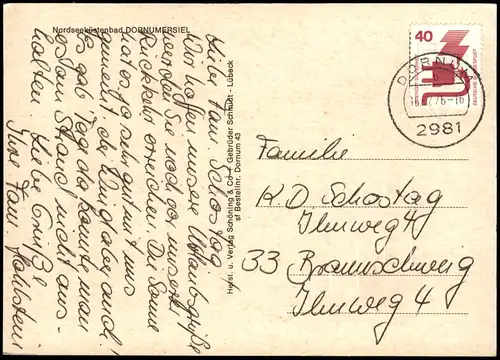 Nordseeküstenbad DORNUMERSIEL
Liebe Fam. Schostag!
Wir hoffen unsere Urlaubsgrüße
werden Sie noch vor unserer
Rückkehr erreichen. Die Sonne
hat es ja sehr gut mit uns
gemeint, die Kinder aber auch!
Es gab Tage da konnte man
es am Strand nicht aus-
halten. Liebe Grüße
Ihre Fam.
Herst. u. Verlag Schöning & Co + Gebrüder Schmidt - Lübeck
sf Bestellnr. Dornum 43
40
DORNUM
2981
Familie
K. D. Schostag
Ilmweg 4
33 Braunschweig
Ilmweg 4